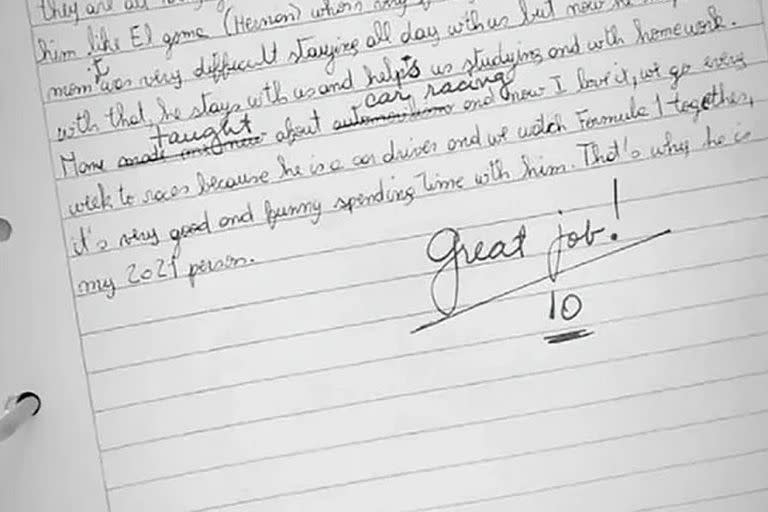 they are all
him like El game (Hernan) who's very
mom it was very difficult staying all day with us but now he
with that, he stays with us and helps us studying and with homework.
taught car racing
about and now I love it, we go every
week to races because he is a car driver and we watch Formula 1 together,
it's very good and funny spending time with him. That's why he is
my 2021 person.
Great job!
10